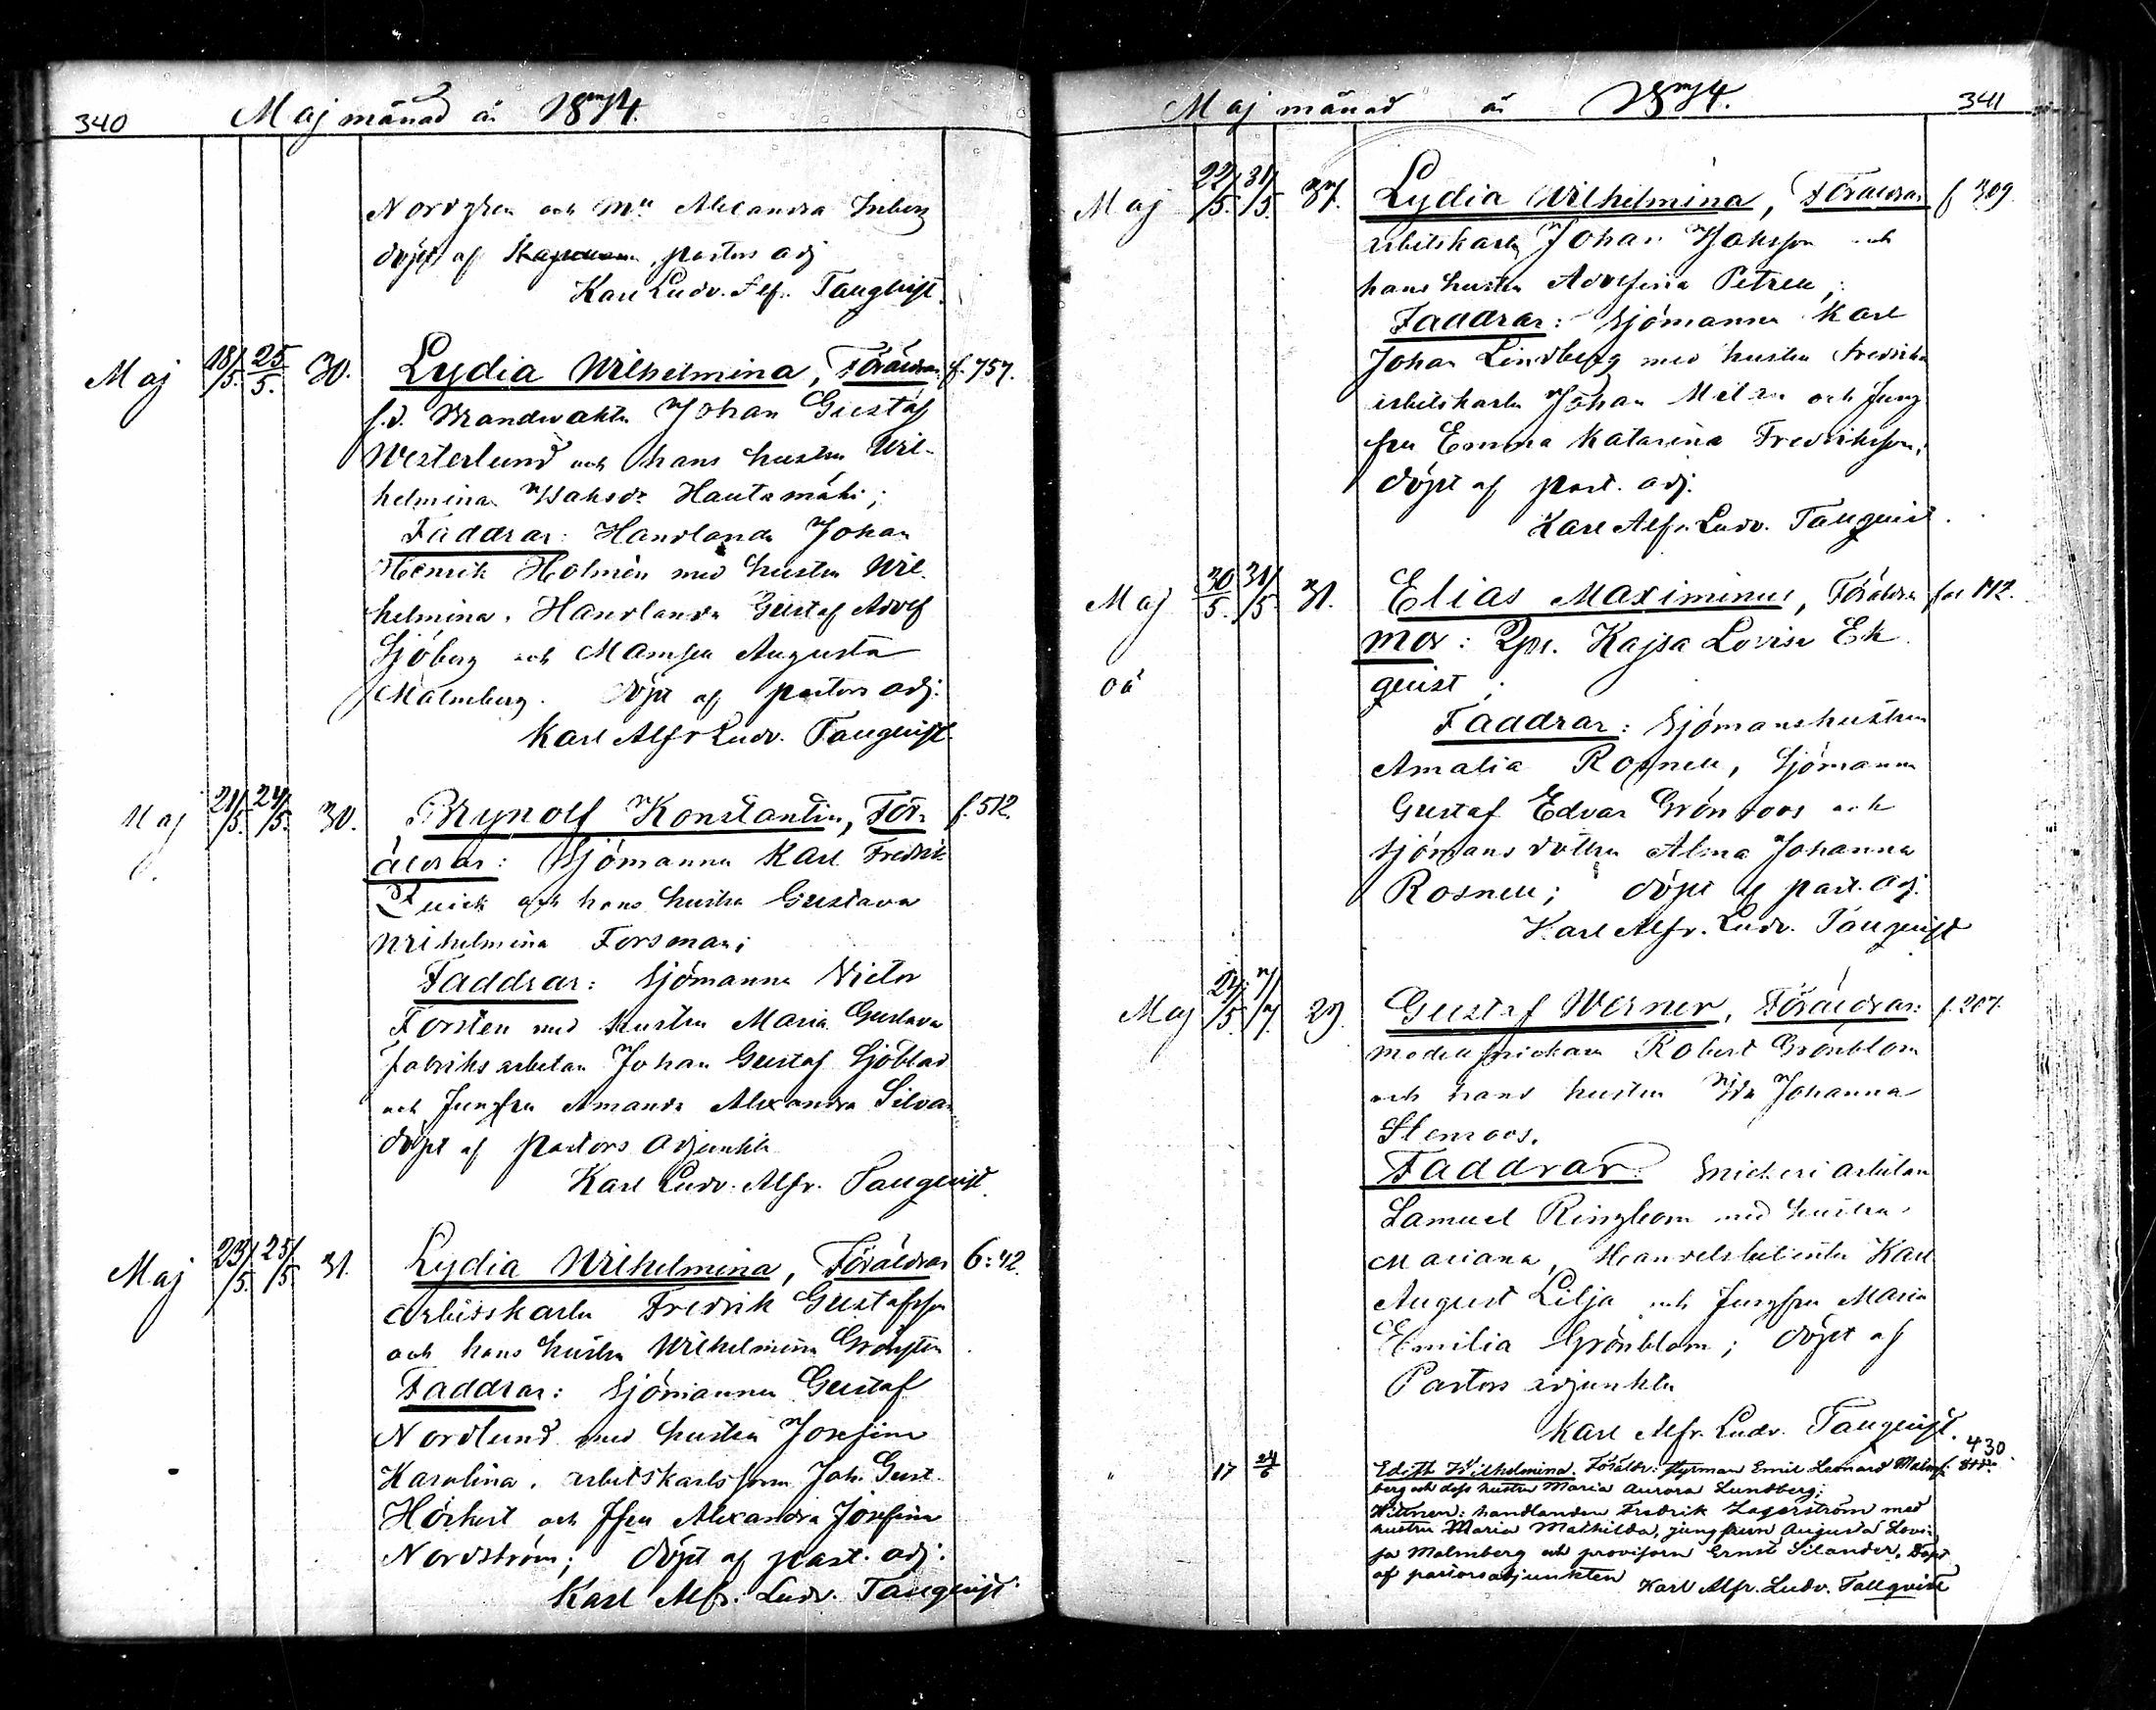 340 Maj månad år 1874.
Nordgren och Mll Alexandra Inberg
döpt af pastors adj
Karl Ludv. Alf. Tallqvist.
Maj 18/5. 25/5. 30. Lydia Wilhelmina, Föräldrar f. 757.
f.d. Brandvakten Johan Gustaf
Westerlund och hans hustru Wil-
helmina Isaksdr Hautamäki;
Faddrar: Handlanden Johan
Henrik Holmén med hustru Wil-
helmina, Handlanden Gustaf Adolf
Sjöberg och Mamsell Augusta
Malmberg. döpt af pastors adj:
Karl Alfr Ludv. Tallqvist.
Maj 21/5. 24/5. 30. Brynolf Konstantin, För- f. 512.
äldrar: Sjömannen Karl Fredrik
Quick och hans hustru Gustava
Wilhelmina Forsman;
Faddrar: Sjömannen Victor
Forstén med hustru Maria Gustava
fabriks arbetaren Johan Gustaf Sjöblad
och Jungfru Amanda Alexandra Silvan
döpt af pastors adjunkten
Karl Ludv. Alfr. Tallqvist.
Maj 23/5. 25/5 31. Lydia Wilhelmina, Föräldrar 6:42.
arbetskarlen Fredrik Gustafsson
och hans hustru Wilhelmina
Faddrar: Sjömannen Gustaf
Nordlund med hustru Josefina
Karolina, arbetskarlssonen Joh. Gust.
och Jfru Alexandra Josefina
Nordström; döpt af past. adj:
Karl Alfr. Ludv. Tallqvist.
Maj månad år 1874. 341
Maj 22/5. 31/5. 37. Lydia Wilhelmina, Föräldrar f 309.
arbetskarlen Johan Isaksson och
hans hustru Adolfina Petrell;
Faddrar: Sjömannen Karl
Johan Lindberg med hustru Fredrika
arbetskarlen Johan och Jung
fru Emma Katarina Fredriksson;
döpt af past. adj.
Karl Alfr. Ludv. Tallqvist.
Maj 30/5. 31/5. 31. Elias Maximinus, Föräldra
mor: Kajsa Lovisa Ek
oä qvist;
Faddrar: Sjömanshustrun
Amalia Rosnell, Sjömannen
Gustaf Edvar Grönroos och
Sjömansdottren Alma Johanna
Rosnell; döpt af past. adj.
Karl Alfr. Ludv. Tallqvist
Maj 7/7 29. Gustaf Werner, Föräldrar: f. 207.
Modellsnickaren Robert Grönblom
och hans hustru Ida Johanna
Stenroos.
Faddrar: Snickeri arbetaren
Samuel Ringbom med hustru
Mariana, Handelsbetjenten Karl
August Lilja och Jungfru Maria
Emilia Grönblom; döpt af
Pastors adjunkten
Karl Alfr. Ludv. Tallqvist.
430
" 17 24/6 Edith Wilhelmina. Föräldr: styrman Emil Leonard Malm- f.
berg och dess hustru Maria Aurora Lundberg;
Wittnen: handlanden Fredrik Lagerström med
hustru Maria Mathilda, jungfrun Augusta Lovi-
sa Malmberg och provisorn Ernst Silander. Döpt
af pastorsadjunkten
Karl Alfr. Ludv. Tallqvist